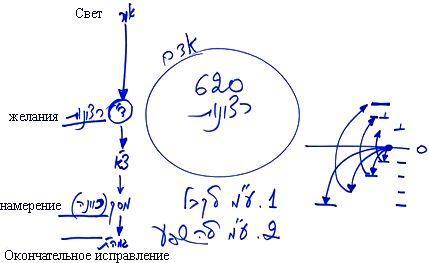 Свет אור
אדם
620
רצונות
желания רצונות
0
намерение מסך (כוונה)
1. ע"מ לקבל
2. ע"מ להשפיע
Окончательное исправление